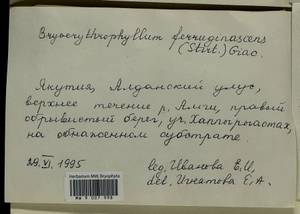 Bryoerythrophyllum ferruginascens
(Stirt.) Giac.
Якутия, Алданский улус,
верхнее течение р. Амги, правый
обрывистый берег, ур.
на обнаженном субстрате.
29.VI.1995
leg. Иванова Е.И.
det. Игнатова Е.А.
Herbarium MW, Bryophyta